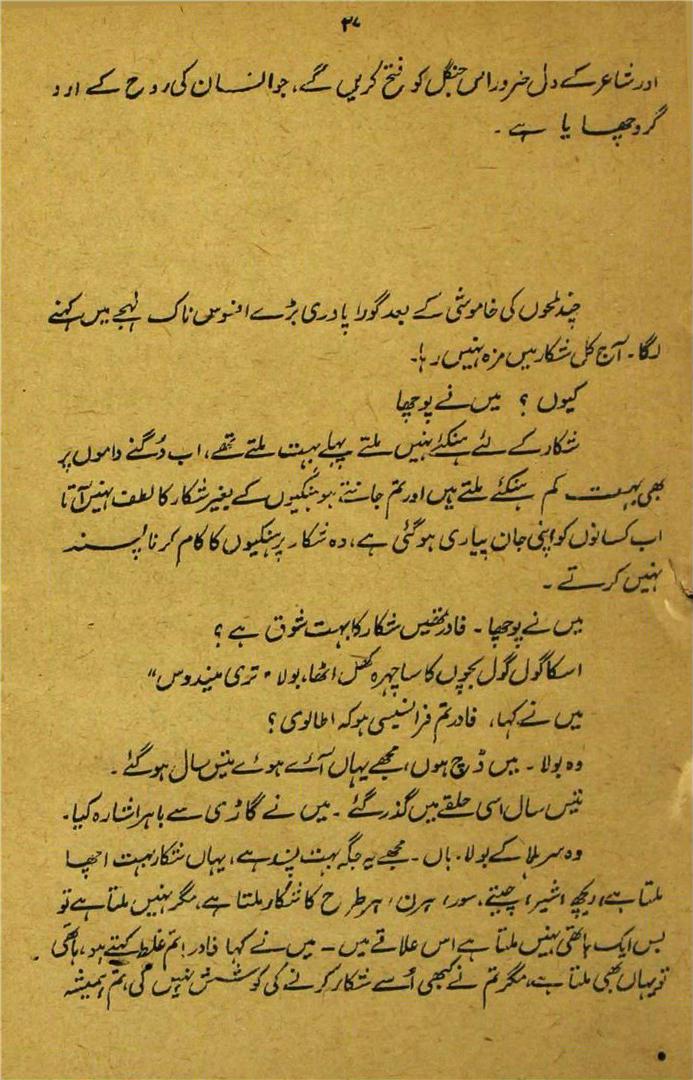 ۲۷
اور شاعر کے دل ضرور اس جنگل کو فتح کریں گے، جو انسان کی روح کے ارد
گرد چھایا ہے ۔
چند لمحوں کی خاموشی کے بعد گورا پادری بڑے افسوس ناک لہجے میں کہنے
لگا۔ آج کل شکار میں مزہ نہیں رہا۔
کیوں ؟ میں نے پوچھا
شکار کے لئے ہنکئے نہیں ملتے پہلے بہت ملتے تھے، اب دُگنے داموں پر
بھی بہت کم ہنکئے ملتے ہیں اور تم جانتے ہو ہنکیوں کے بغیر شکار کا لطف نہیں آتا
اب کسانوں کو اپنی جان پیاری ہو گئی ہے، وہ شکار پر ہنکیوں کا کام کرنا پسند
نہیں کرتے ۔
میں نے پوچھا ۔ فادر تمھیں شکار کا بہت شوق ہے ؟
اسکا گول گول بچوں کا سا چہرہ کھل اٹھا، بولا " تری مینڈوس "
میں نے کہا، فادر تم فرانسیسی ہو کہ اطالوی ؟
وہ بولا ۔ میں ڈچ ہوں، مجھے یہاں آئے ہوئے تیس سال ہو گئے ۔
تیس سال اسی حلقے میں گذر گئے ۔ میں نے گاڑی سے باہر اشارہ کیا۔
وہ سر ہلا کے بولا۔ ہاں ۔ مجھے یہ جگہ بہت پسند ہے، یہاں شکار بہت اچھا
ملتا ہے، ریچھ، شیر، چیتے، سور، ہرن، ہر طرح کا شکار ملتا ہے، مگر نہیں ملتا ہے تو
بس ایک ہاتھی نہیں ملتا ہے اس علاقے میں ۔ میں نے کہا فادر! تم غلط کہتے ہو، ہاتھی
تو یہاں بھی ملتا ہے، مگر تم نے کبھی اُسے شکار کرنے کی کوشش نہیں کی، تم ہمیشہ